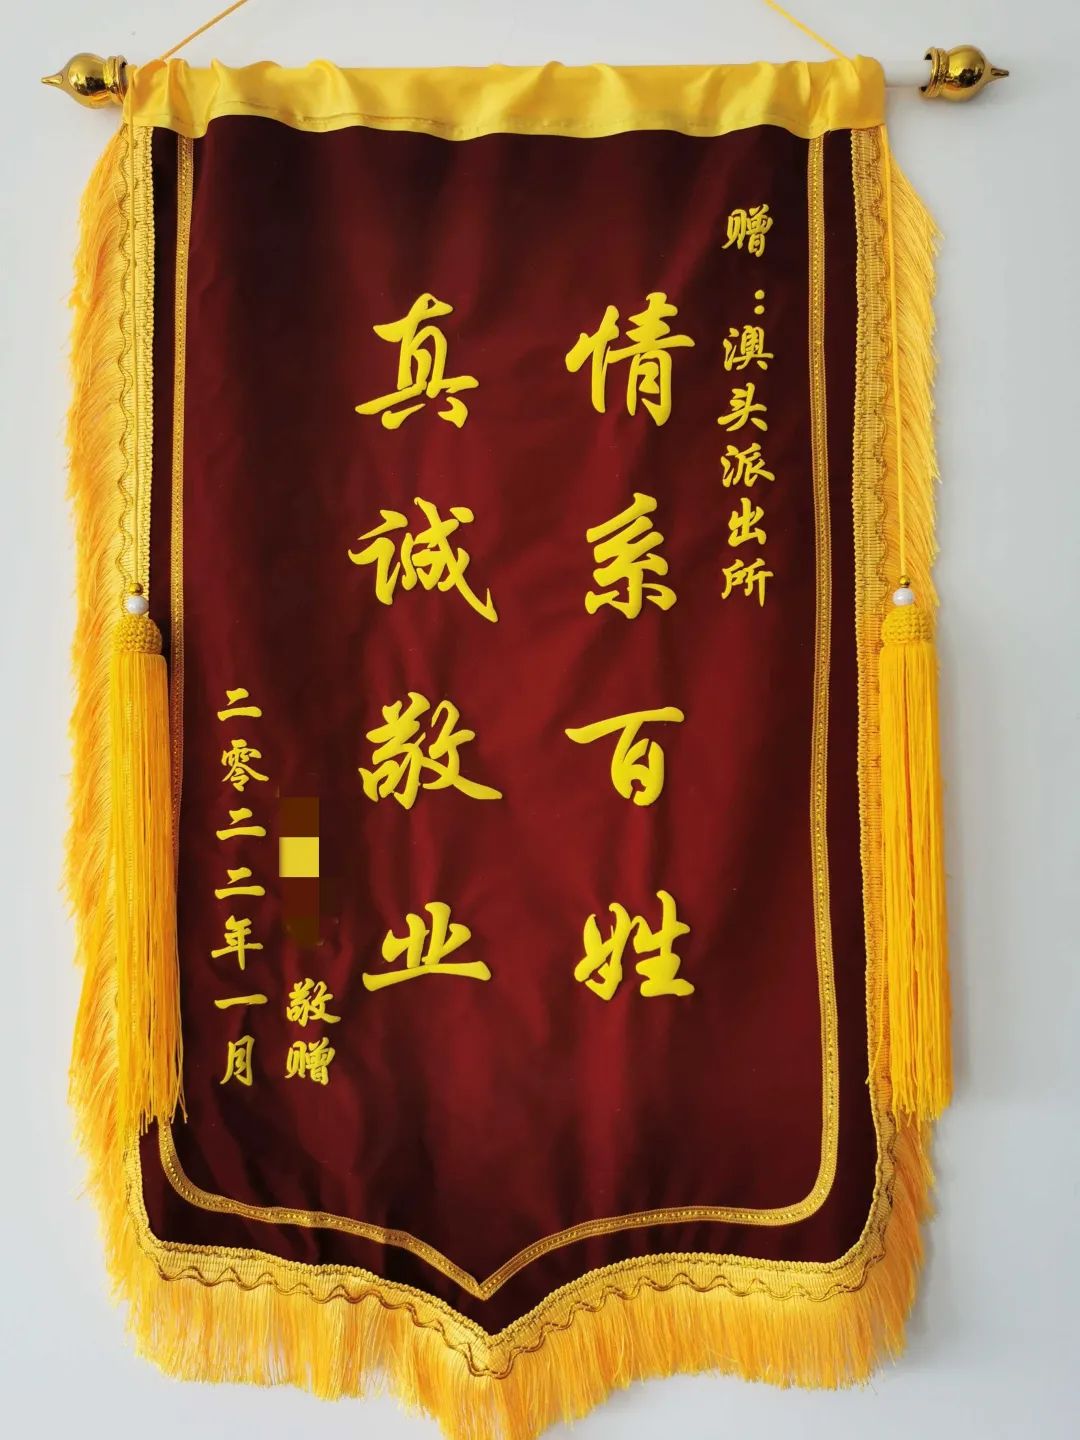 赠：澳头派出所
情系百姓
真诚敬业
敬赠
二零二二年一月